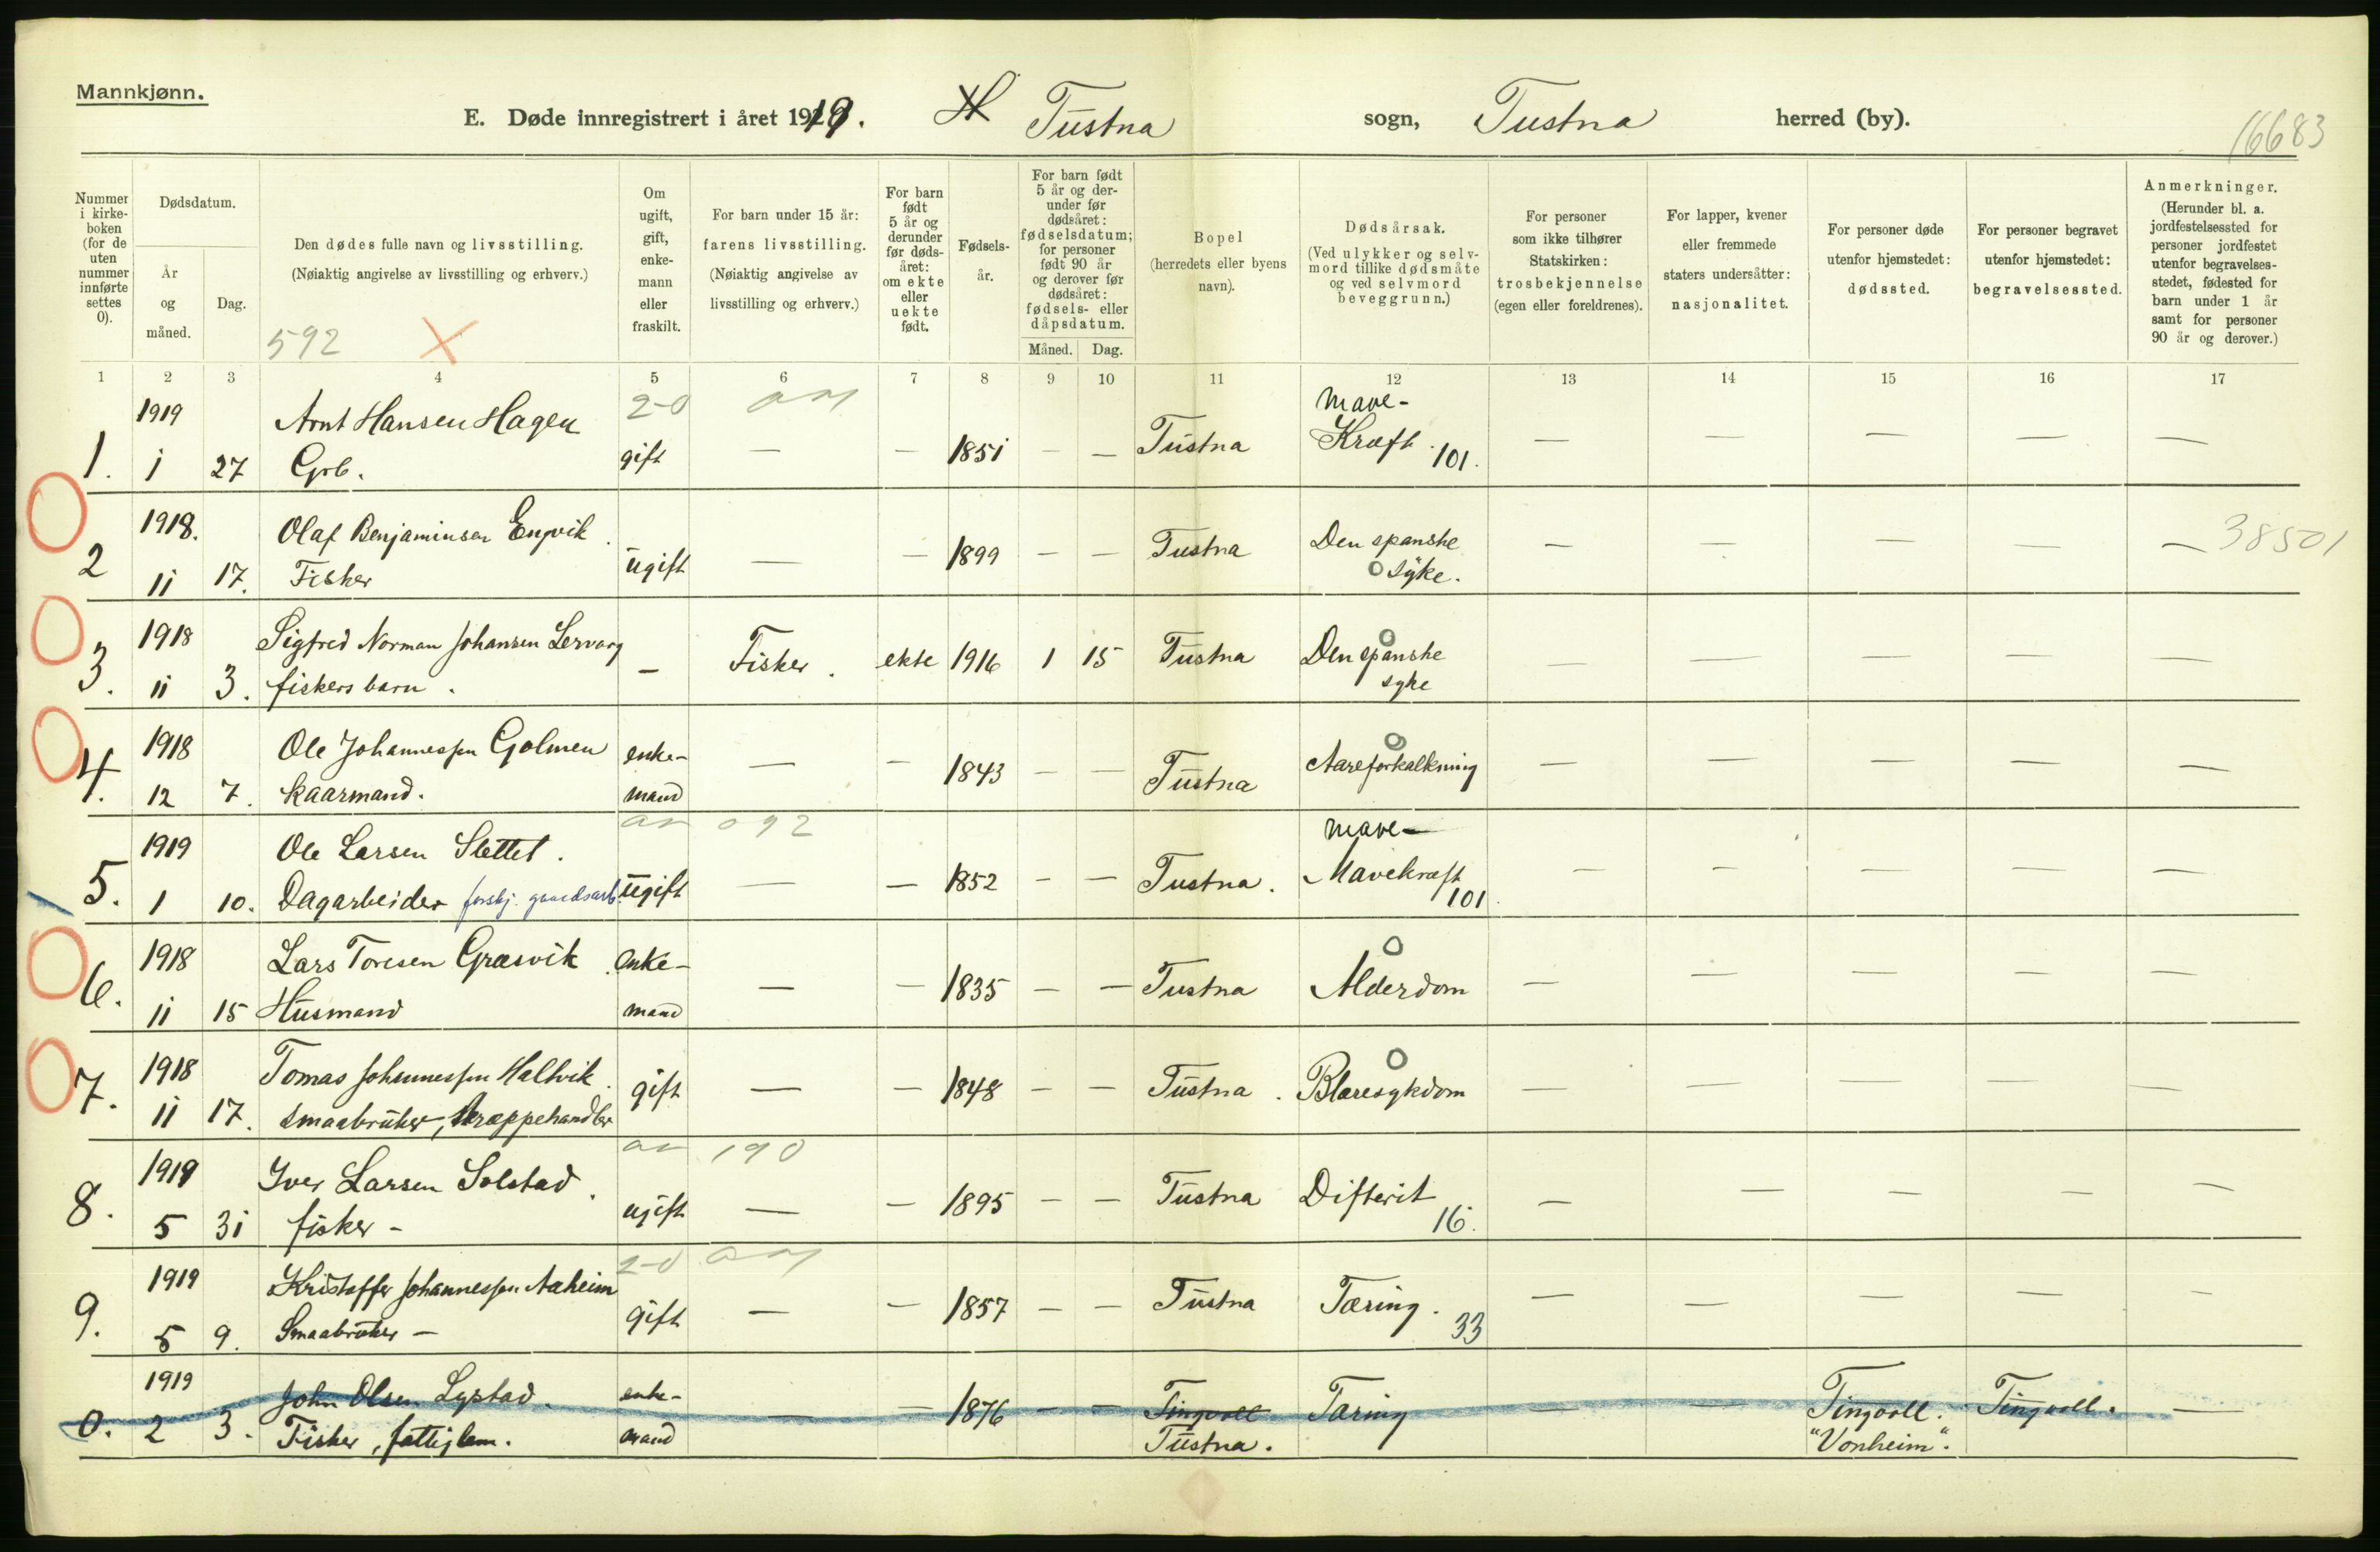 Mannkjønn.
E. Døde innregistrert i året 1919. Tustna sogn, Tustna herred (by).
16683
Nummer i kirkeboken (for de uten nummer innførte settes 0).
Dødsdatum.
År og måned.
Dag.
Den dødes fulle navn og livsstilling.
(Nøiaktig angivelse av livsstilling og erhverv.)
592 X
Om ugift, gift, enkemann eller fraskilt.
For barn under 15 år: farens livsstilling.
(Nøiaktig angivelse av livsstilling og erhverv.)
For barn født 5 år og derunder før dødsåret: om ekte eller uekte født.
Fødselsår.
For barn født 5 år og derunder før dødsåret: fødselsdatum; for personer født 90 år og derover før dødsåret: fødsels- eller dåpsdatum.
Måned. Dag.
Bopel
(herredets eller byens navn).
Dødsårsak.
(Ved ulykker og selvmord tillike dødsmåte og ved selvmord beveggrunn.)
For personer som ikke tilhører Statskirken: trosbekjennelse (egen eller foreldrenes).
For lapper, kvener eller fremmede staters undersåtter: nasjonalitet.
For personer døde utenfor hjemstedet: dødssted.
For personer begravet utenfor hjemstedet: begravelsessted.
Anmerkninger.
(Herunder bl. a. jordfestelsessted for personer jordfestet utenfor begravelsesstedet, fødested for barn under 1 år samt for personer 90 år og derover.)
1 2 3 4 5 6 7 8 9 10 11 12 13 14 15 16 17
1919 Arnt Hansen Hagen 2-0 Mave-
1. 1 27 Grb. gift — — 1851 — — Tustna Kræft. 101. — — — — —
1918. Olaf Benjaminsen Engvik Den spanske 38501
2 11 17. Fisker ugift — — 1899 — — Tustna syke. — — — — —
1918 Sigfred Norman Johansen Lervaag Den spanske
3. 11 3. fiskers barn. — Fisker. ekte 1916 1 15 Tustna syke — — — — —
1918 Ole Johannessen Golmen enke-
4. 12 7. kaarmand. mand — — 1843 — — Tustna Aareforkalkning — — — — —
092
1919 Ole Larsen Slettet. Mave-
5. 1 10. Dagarbeider forskj. gaardsarb. ugift — — 1852 — — Tustna. Mavekræft 101. — — — — —
1918 Lars Toresen Græsvik enke-
6. 11 15 Husmand mand — — 1835 — — Tustna Alderdom — — — — —
1918 Tomas Johannessen Hallvik.
7. 11 17. smaabruker, skræppehandler gift — — 1848 — — Tustna. Blæresykdom — — — — —
190
1919 Iver Larsen Solstad.
8. 5 31 fisker - ugift — — 1895 — — Tustna Difterit 16. — — — — —
2-0
1919 Kristoffer Johannessen Aaheim
9. 5 9. Smaabruker — gift — — 1857 — — Tustna Tæring. 33 — — — — —
1919 John Olsen Lystad. enke- Tingvoll Tingvoll. Tingvoll.
0. 2 3. Fisker, fattiglem. mand — — 1876 — — Tustna. Tæring — — "Vonheim". —